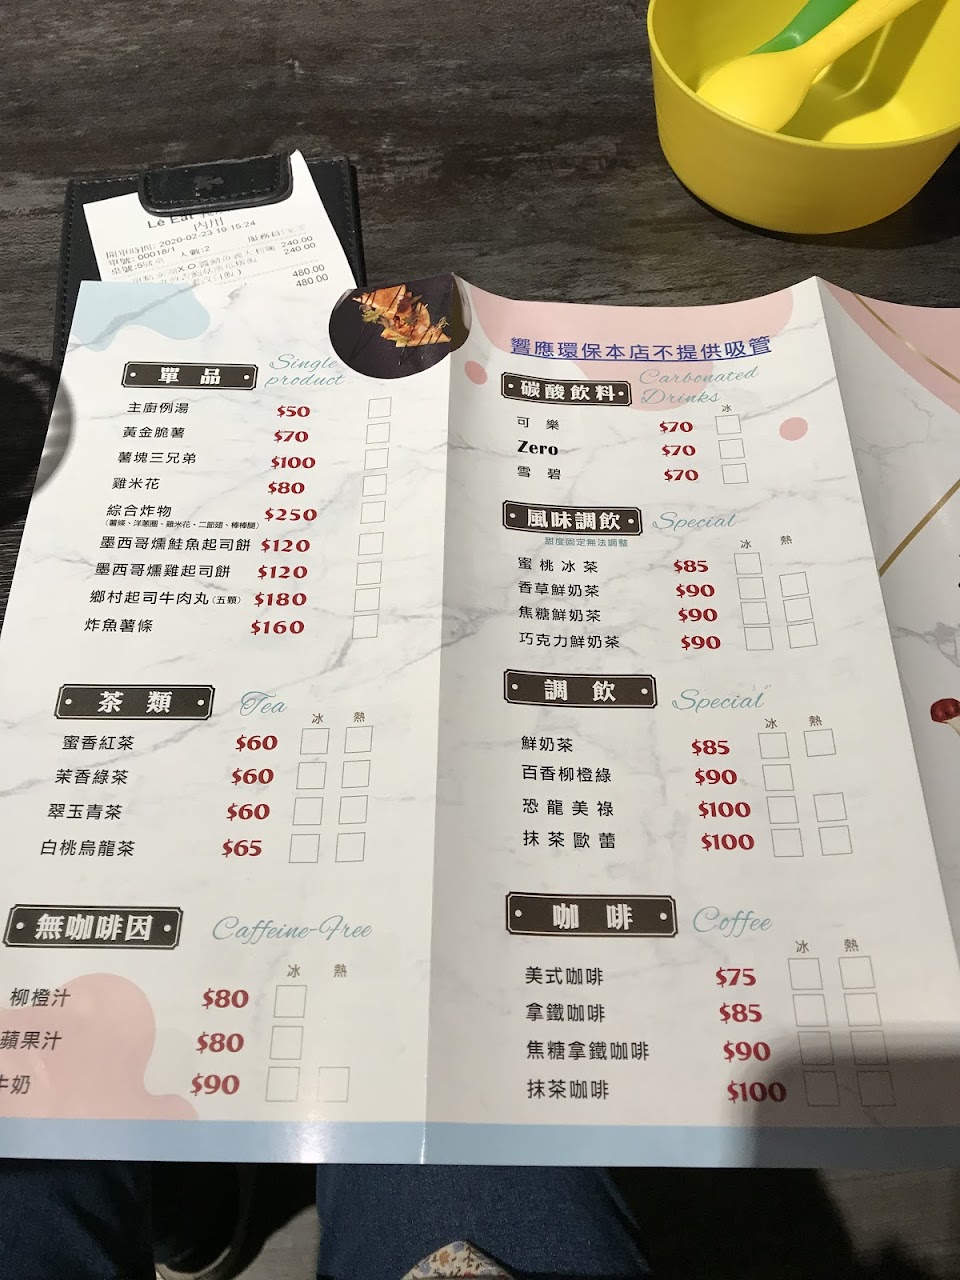 Le Eat
內用
開單時間: 2020-02-23 19:15:24
單號: 00018/1 人數:2 服務員:
240.00
240.00
480.00
480.00
單品 Single product
主廚例湯 $50
黃金脆薯 $70
薯塊三兄弟 $100
雞米花 $80
綜合炸物 $250
(薯條、洋蔥圈、雞米花、二節翅、棒棒腿)
墨西哥燻鮭魚起司餅 $120
墨西哥燻雞起司餅 $120
鄉村起司牛肉丸(五顆) $180
炸魚薯條 $160
茶類 Tea
冰 熱
蜜香紅茶 $60
茉香綠茶 $60
翠玉青茶 $60
白桃烏龍茶 $65
無咖啡因 Caffeine-Free
冰 熱
柳橙汁 $80
蘋果汁 $80
牛奶 $90
響應環保本店不提供吸管
碳酸飲料 Carbonated Drinks
冰
可樂 $70
Zero $70
雪碧 $70
風味調飲 Special
甜度固定無法調整
冰 熱
蜜桃冰茶 $85
香草鮮奶茶 $90
焦糖鮮奶茶 $90
巧克力鮮奶茶 $90
調飲 Special
冰 熱
鮮奶茶 $85
百香柳橙綠 $90
恐龍美祿 $100
抹茶歐蕾 $100
咖啡 Coffee
冰 熱
美式咖啡 $75
拿鐵咖啡 $85
焦糖拿鐵咖啡 $90
抹茶咖啡 $100